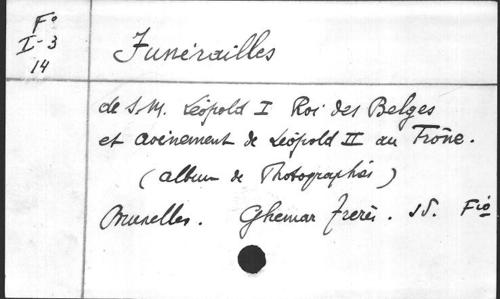 Fº
I-3
14
Funérailles
de S.M. Léopold I Roi des Belges
et avènement de Léopold II au Trône.
(album de Photographies)
Bruxelles. Ghemar Frères. sd. Fiº